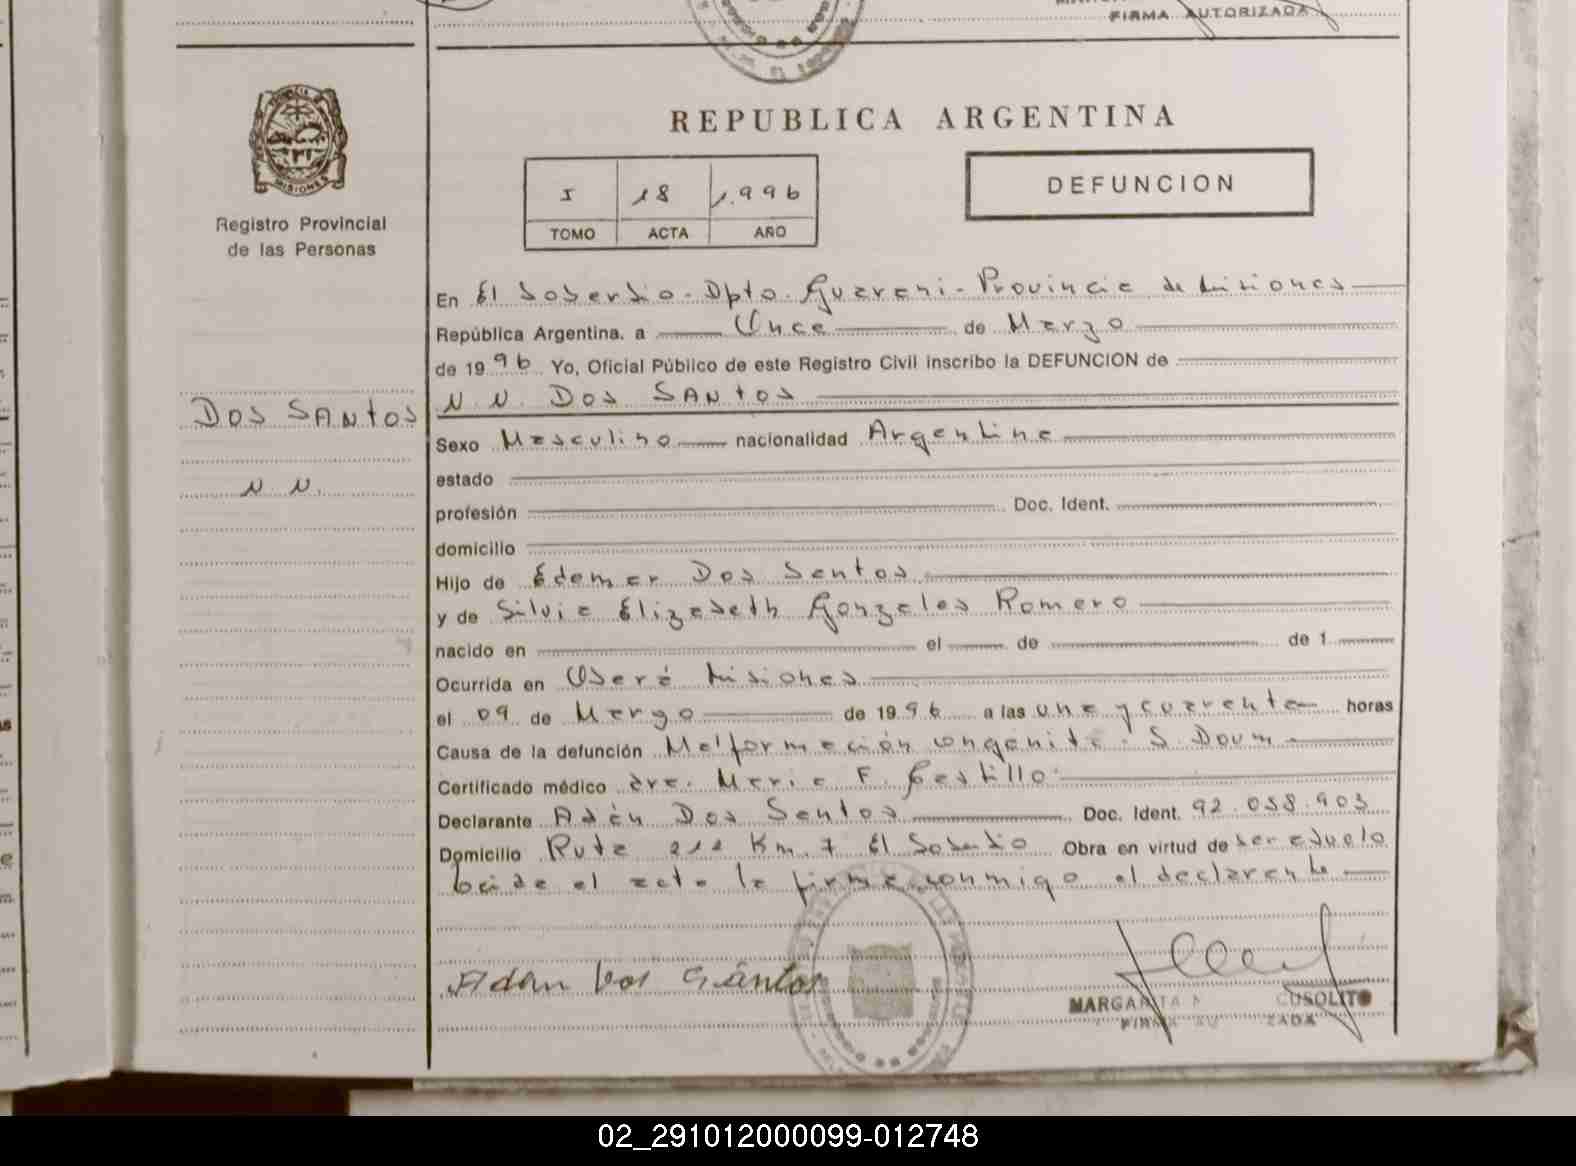 FIRMA AUTORIZADA
MISIONES
Registro Provincial
de las Personas
DOS SANTOS
N. N.
REPUBLICA ARGENTINA
I 18 1.996
TOMO ACTA AÑO
DEFUNCION
En El Soberbio - Dpto. Guarani - Provincia de Misiones
República Argentina, a Once de Marzo
de 1996 Yo, Oficial Público de este Registro Civil inscribo la DEFUNCION de
N. N. DOS SANTOS
Sexo Masculino nacionalidad Argentina
estado
profesión Doc. Ident.
domicilio
Hijo de Edemar Dos Santos
y de Silvia Elizabeth Gonzales Romero
nacido en el de de 1
Ocurrida en Oberá Misiones
el 09 de Marzo de 1996 a las una y cuarenta horas
Causa de la defunción Malformación congénita. S. Doum
Certificado médico dra. Maria F. Castillo
Declarante Adán Dos Santos Doc. Ident. 92.058.903
Domicilio Ruta 212 Km. 7 El Soberbio Obra en virtud de ser abuelo
el acta la firma conmigo el declarante
Adan Dos Santos
MARGARITA CUSOLITO
FIRMA
02_291012000099-012748